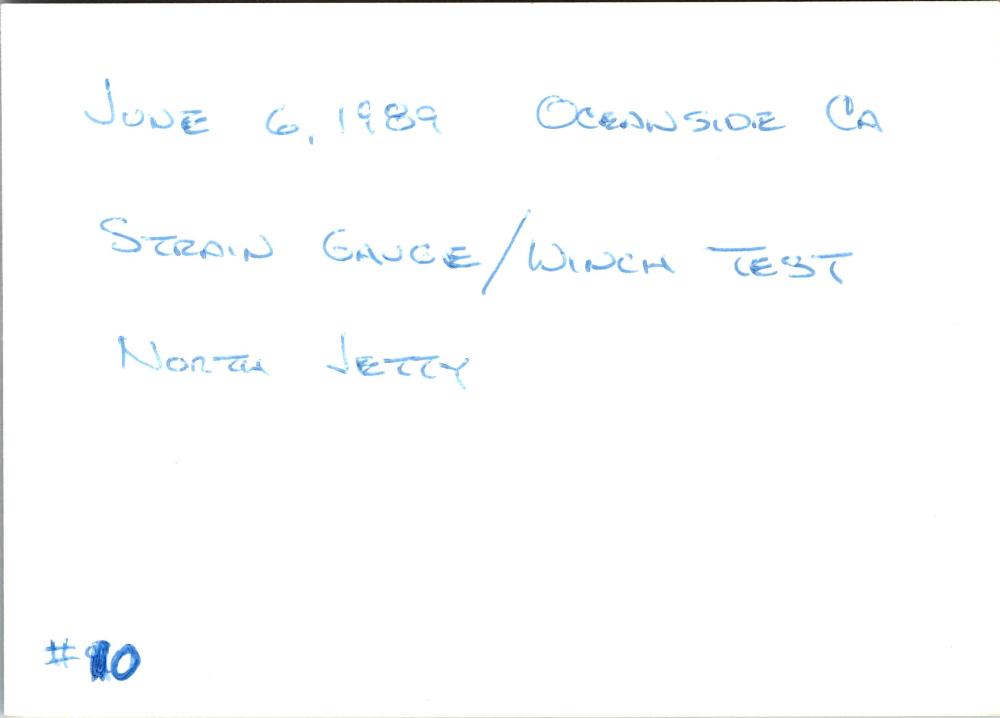 June 6, 1989 Oceanside Ca
Strain Gauge/Winch Test
North Jetty
#10